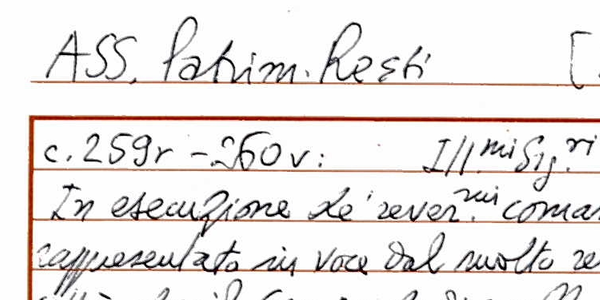 ASS. Patrim. Resti [
c. 259r - 260v: Ill.mi Sig.ri
In esecuzione de' rever.mi coman
rappresentata in voce dal molto re